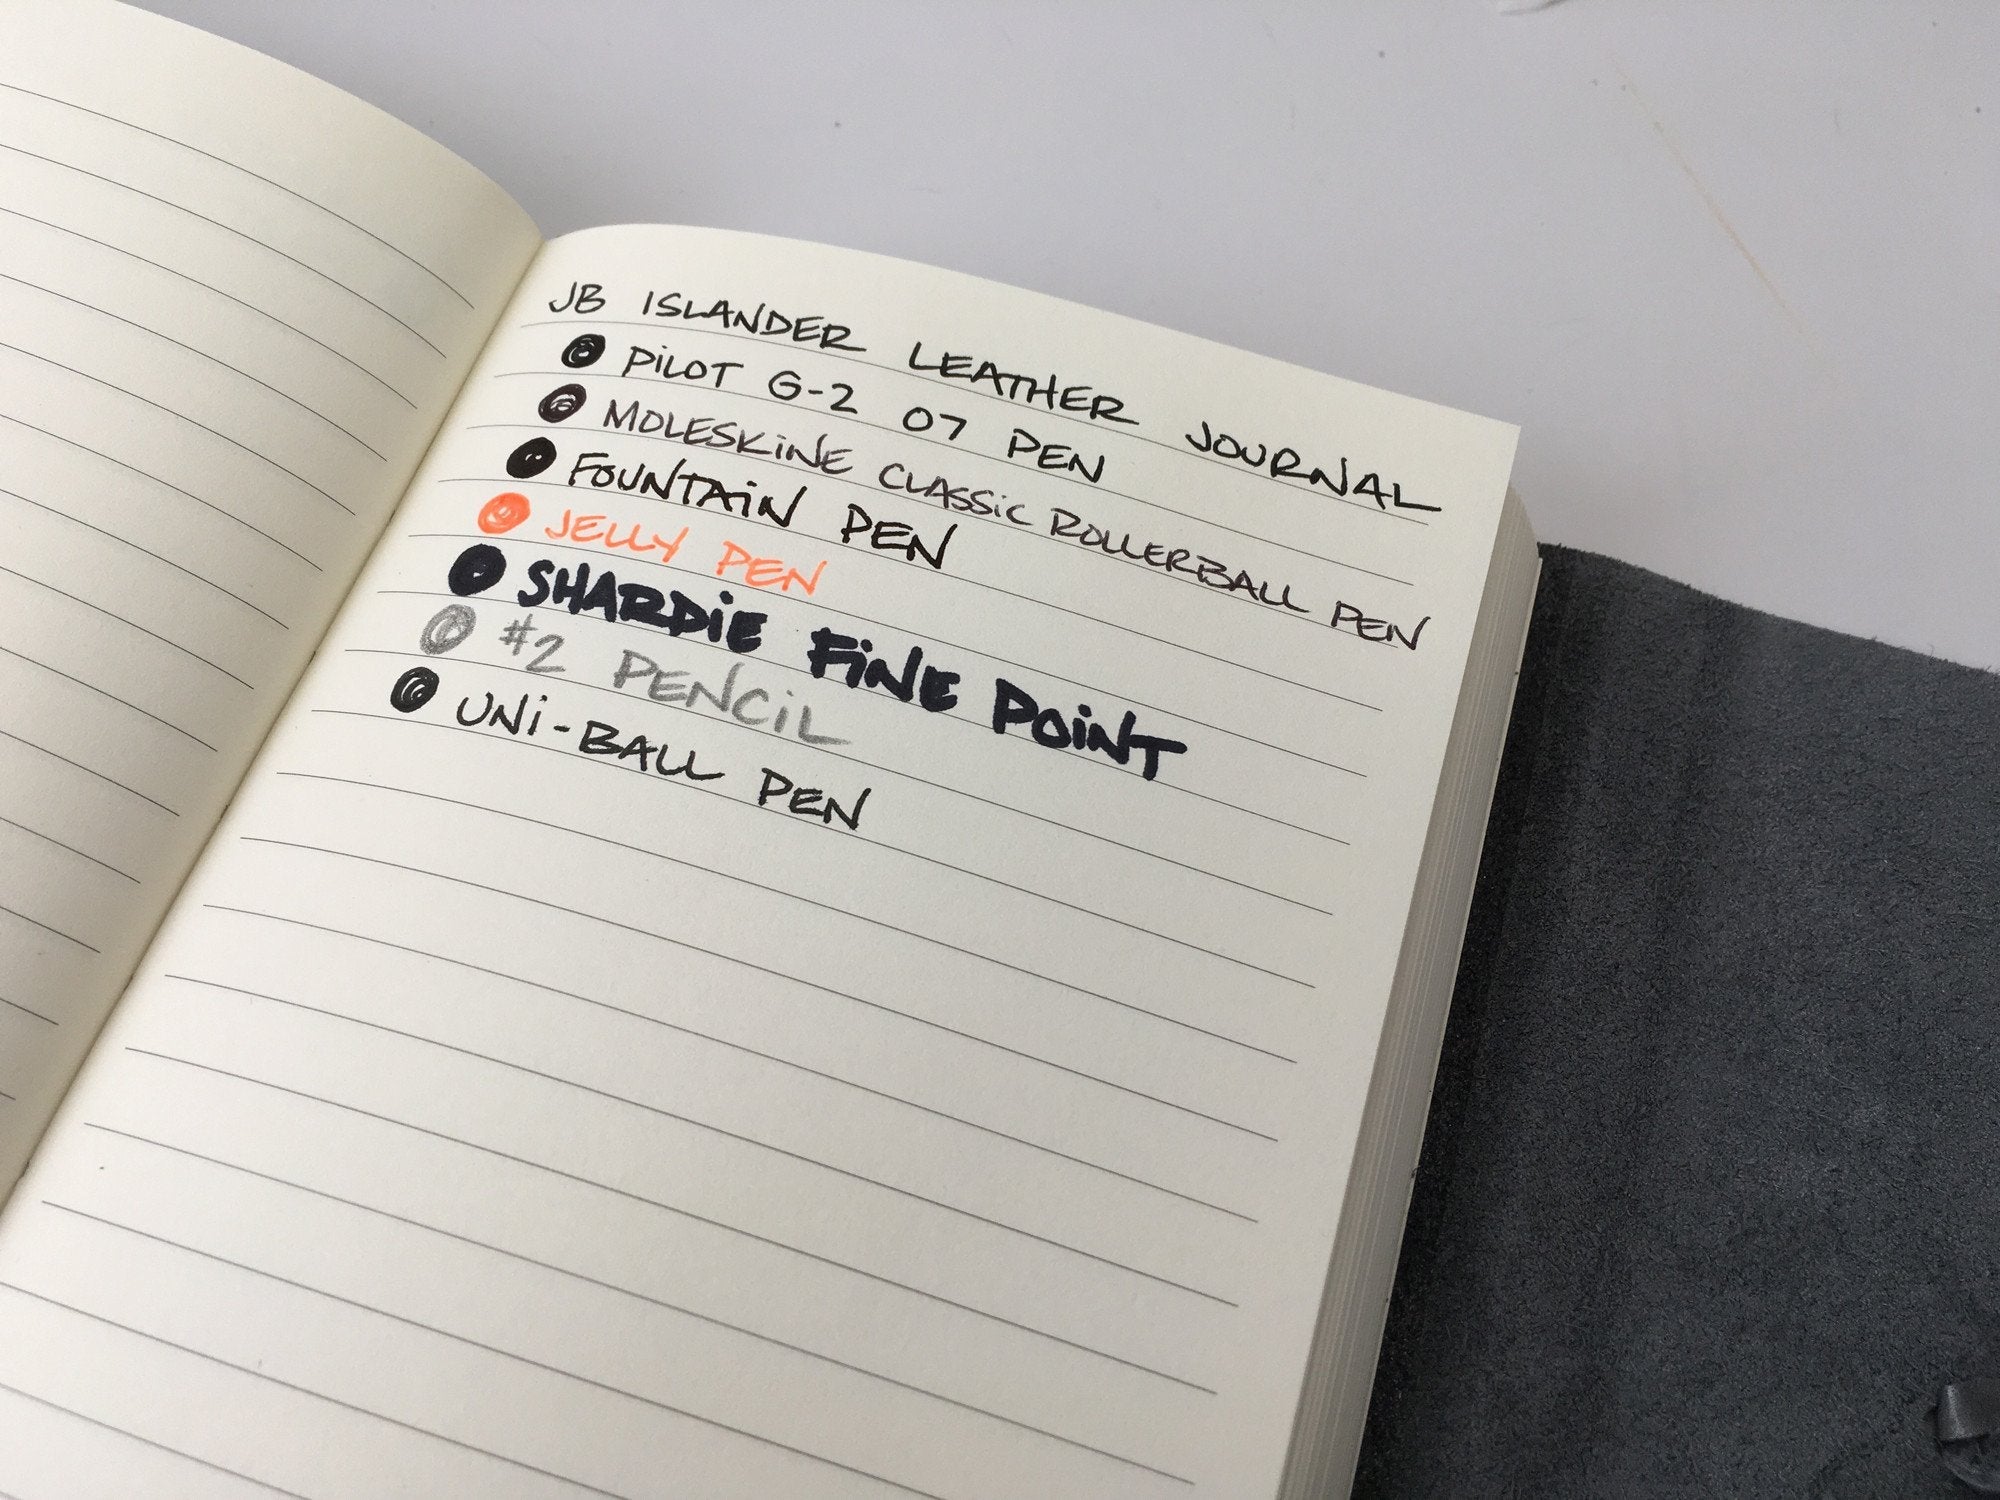 JB ISLANDER LEATHER JOURNAL
PILOT G-2 07 PEN
MOLESKINE CLASSIC ROLLERBALL PEN
FOUNTAIN PEN
JELLY PEN
SHARDIE FINE POINT
#2 PENCIL
UNI-BALL PEN